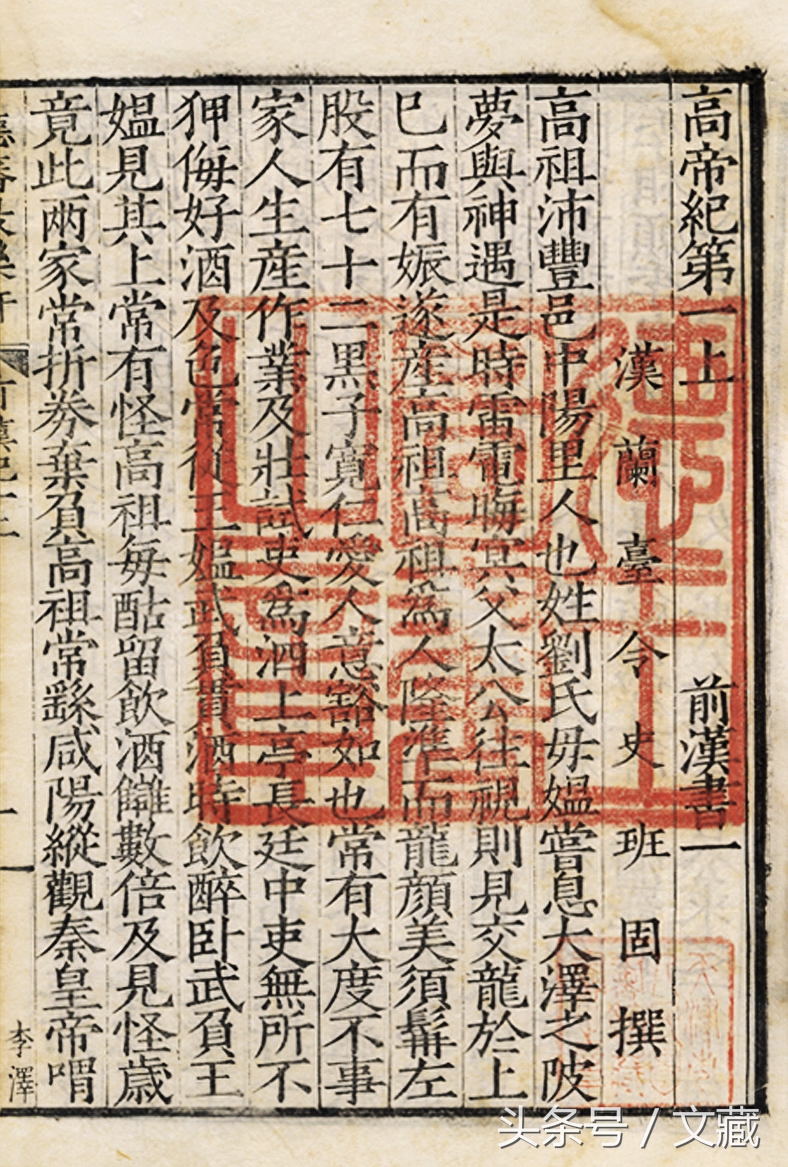 高帝紀第一上 前漢書一
漢蘭臺令史班固撰
高祖沛豐邑中陽里人也姓劉氏毋媼嘗息大澤之陂
夢與神遇是時雷電晦冥父太公往視則見交龍於上
巳而有娠遂産高祖高祖爲人隆準而龍顔美須髯左
股有七十二黑子寬仁愛人意豁如也常有大度不事
家人生産作業及壯試吏爲泗上亭長廷中吏無所不
狎侮好酒及色常從王媼武負貰酒時飲醉卧武負王
媼見其上常有怪高祖每酤留飲酒讎數倍及見怪歲
竟此兩家常折券棄負高祖常繇咸陽縱觀秦皇帝喟
李澤
头条号 / 文藏